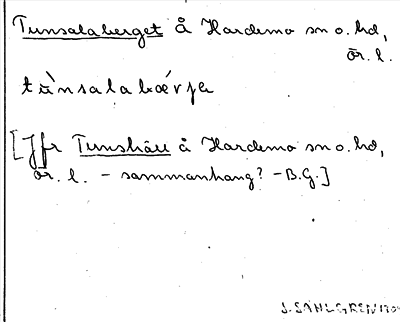 Tunsalaberget å Hardemo sn o. hd,
ör. l.
tùnsalabærja
[Jfr Tunshäll å Hardemo sn o. hd,
ör. l. – sammanhang? – B.G.]
J. SAHLGREN